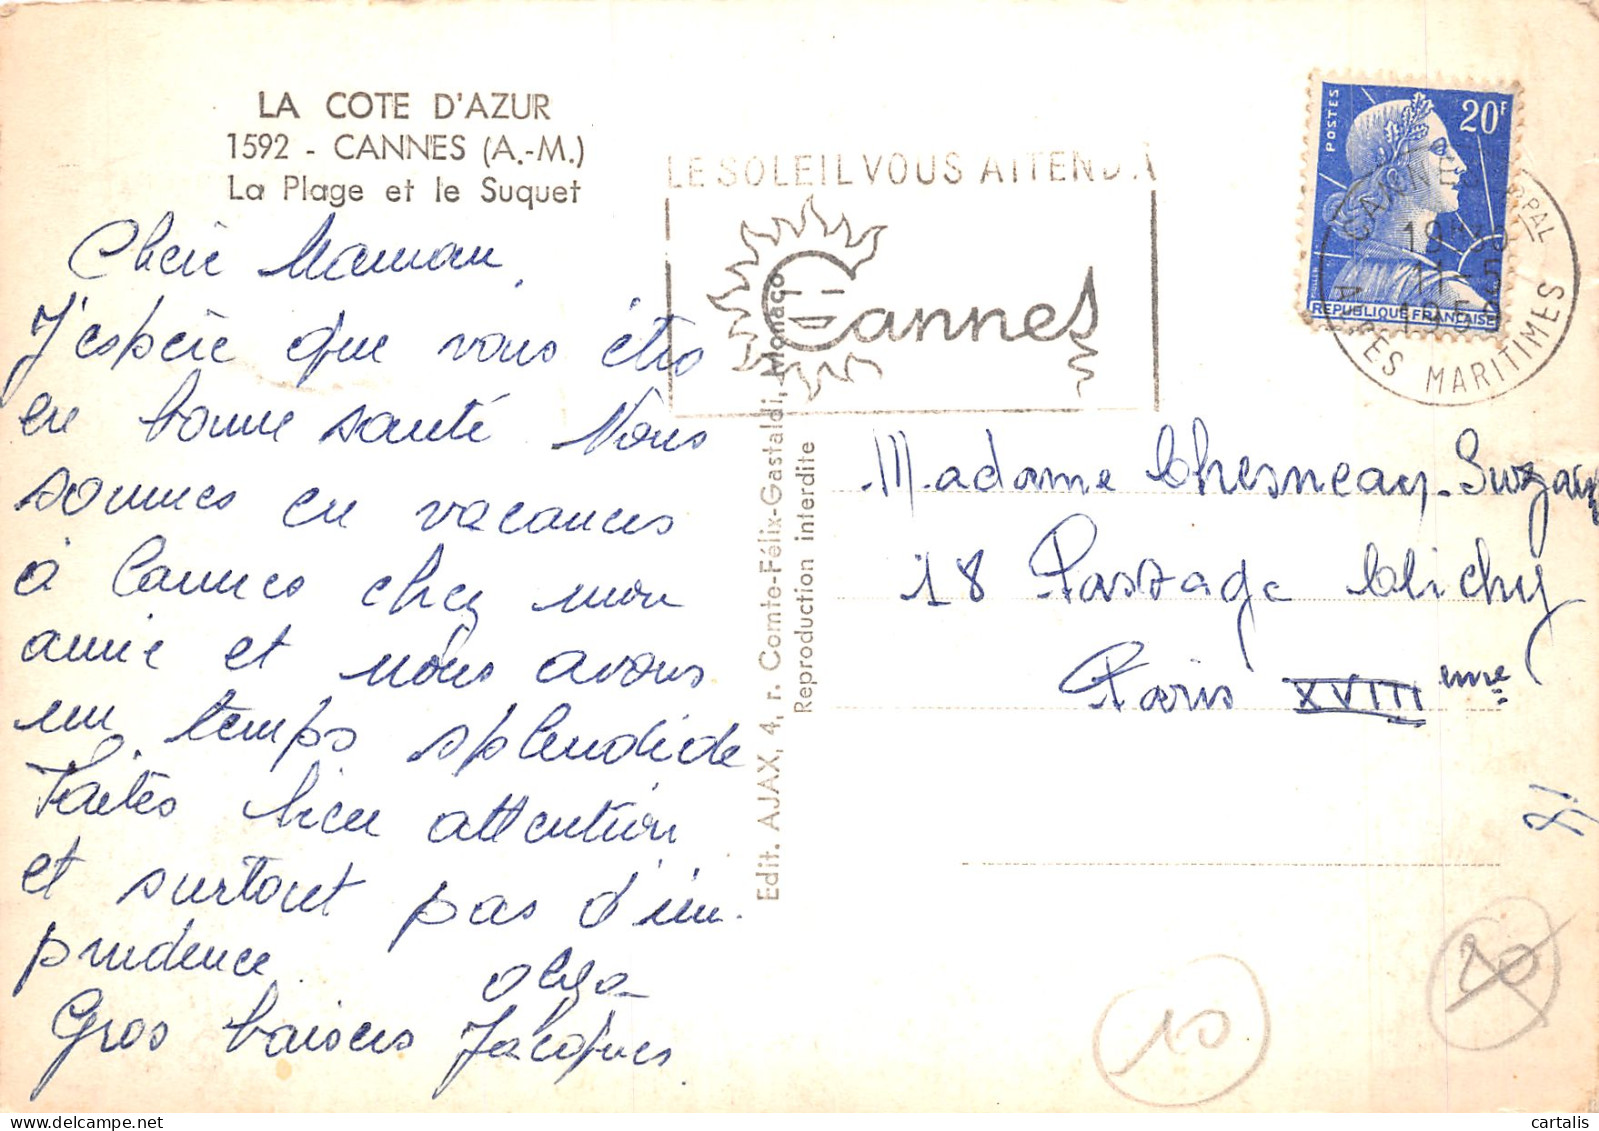 LA COTE D'AZUR
1592 - CANNES (A.-M.)
La Plage et le Suquet
Chère Maman,
J'espère que vous êtes
en bonne santé. Nous
sommes en vacances
à Cannes chez mon
amie et nous avons
un temps splendide
Faites bien attention
et surtout pas d'im-
prudence.
Olga
Gros baisers Jacques
Edit. AJAX, 4, r. Comte-Félix-Gastaldi, Monaco
Reproduction interdite
LE SOLEIL VOUS ATTEND A
Cannes
POSTES
20F
REPUBLIQUE FRANÇAISE
CANNES PPAL
11-5
ALPES MARITIMES
Madame Chesneau Suzan
18 Passage Clichy
Paris XVIIIème
10
20
cartalis